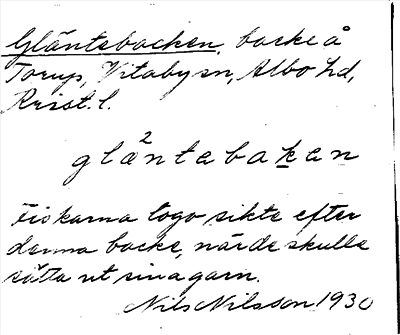 Gläntebacken, backe å
Torup, Vitaby sn, Albo hd,
Krist. l.
glä²ntebaḵen
Fiskarna togo sikte efter
denna backe, när de skulle
sätta ut sina garn.
Nils Nilsson 1930